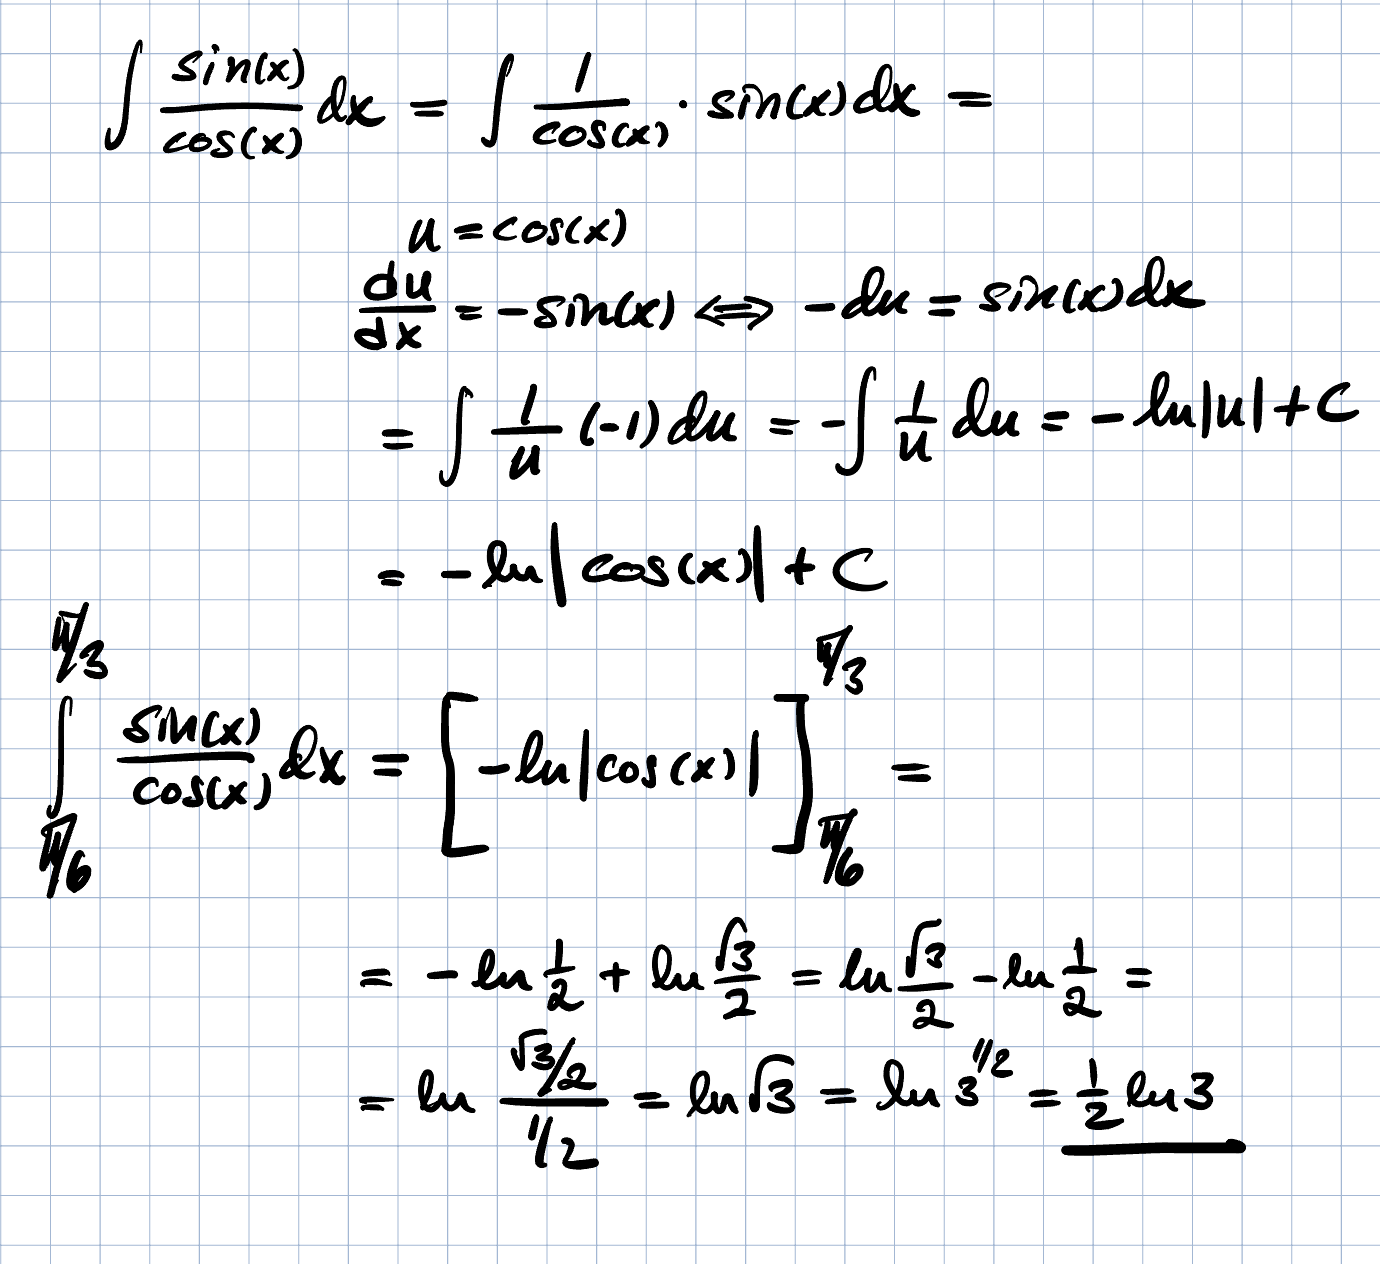 ∫ sin(x)/cos(x) dx = ∫ 1/cos(x) · sin(x) dx =
u = cos(x)
du/dx = -sin(x) ⟺ -du = sin(x) dx
= ∫ 1/u (-1) du = -∫ 1/u du = -ln|u| + C
= -ln|cos(x)| + C
∫_{π/6}^{π/3} sin(x)/cos(x) dx = [-ln|cos(x)|]_{π/6}^{π/3} =
= -ln 1/2 + ln √3/2 = ln √3/2 - ln 1/2 =
= ln (√3/2)/(1/2) = ln √3 = ln 3^{1/2} = 1/2 ln 3